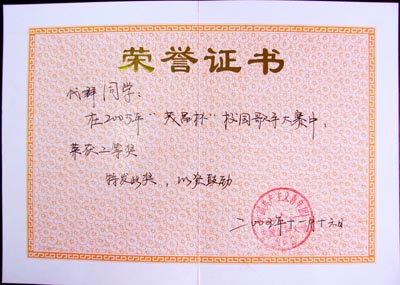 荣誉证书
同学：
在2005年"茂昌杯"校园歌手大赛中，
荣获二等奖
特发此奖，以资鼓励
二〇〇五年十一月十六日